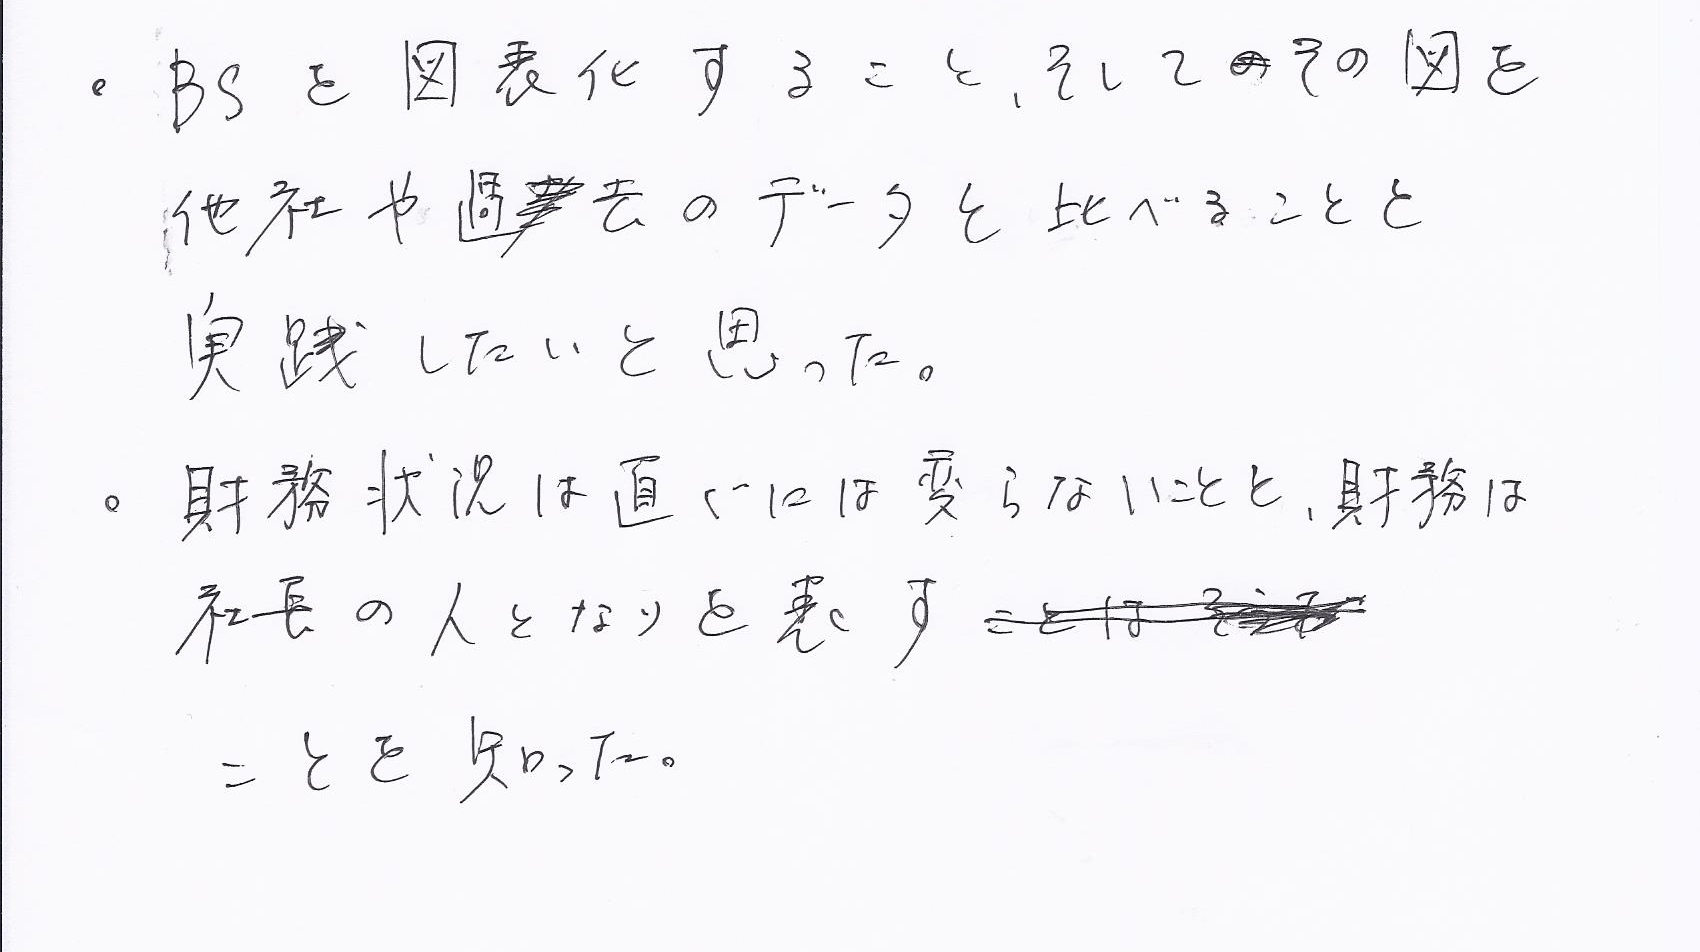 • BSを図表化すること、そしてその図を
他社や過去のデータと比べることと
実践したいと思った。
• 財務状況は直ぐには変らないことと、財務は
社長の人となりを表す
ことを知った。